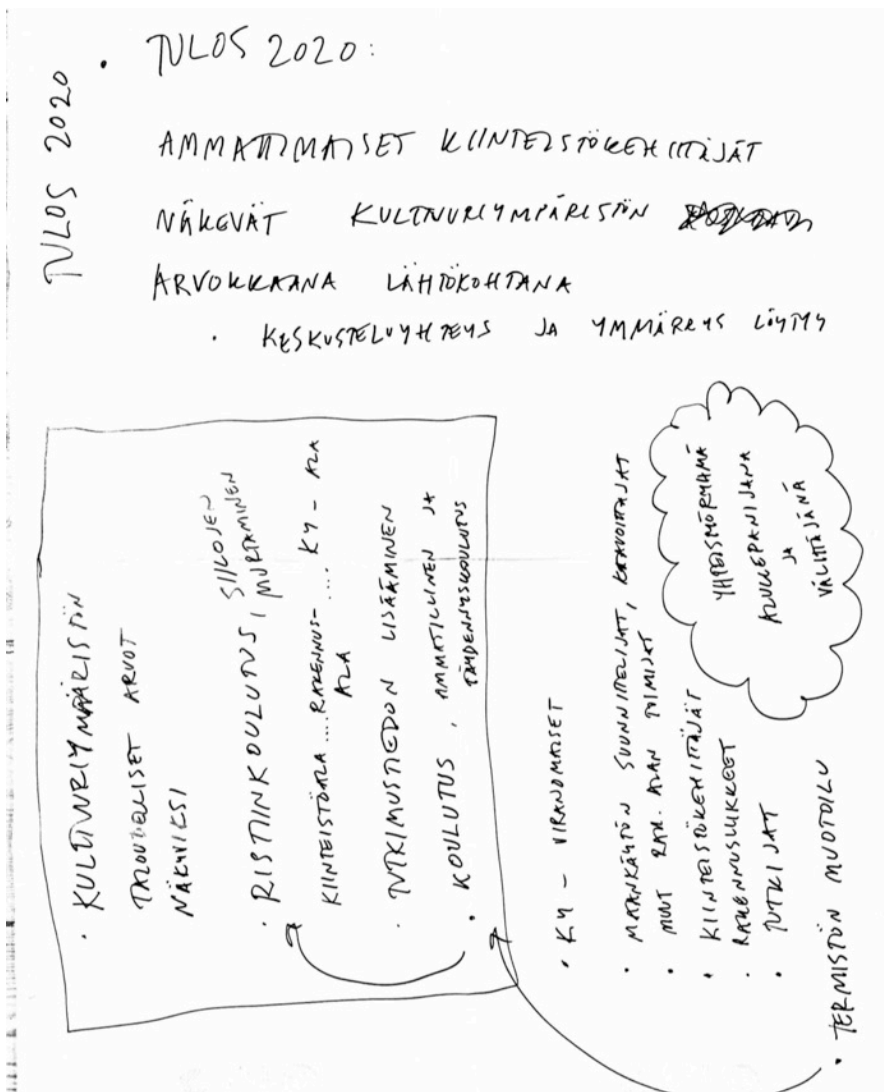 TULOS 2020
• TULOS 2020:
AMMATTIMAISET KIINTEISTÖKEHITTÄJÄT
NÄKEVÄT KULTTUURIYMPÄRISTÖN
ARVOKKAANA LÄHTÖKOHTANA
• KESKUSTELUYHTEYS JA YMMÄRRYS LÖYTYY
• KULTTUURIYMPÄRISTÖN
TALOUDELLISET ARVOT
NÄKYVIKSI
• RISTIINKOULUTUS, SIILOJEN
MURTAMINEN
KIINTEISTÖALA .... RAKENNUS- .... KY - ALA
ALA
• TUTKIMUSTIEDON LISÄÄMINEN
• KOULUTUS, AMMATILLINEN JA
TÄYDENNYSKOULUTUS
• KY - VIRANOMAISET
• MAANKÄYTÖN SUUNNITELIJAT, KAAVOITTAJAT
• MUUT RAK. ALAN TOIMIJAT
• KIINTEISTÖKEHITTÄJÄT
• RAKENNUSLIIKKEET
• TUTKIJAT
• TERMISTÖN MUOTOILU
YHTEISTYÖRYHMÄ
ALULLEPANIJANA
JA
VÄLITTÄJÄNÄ